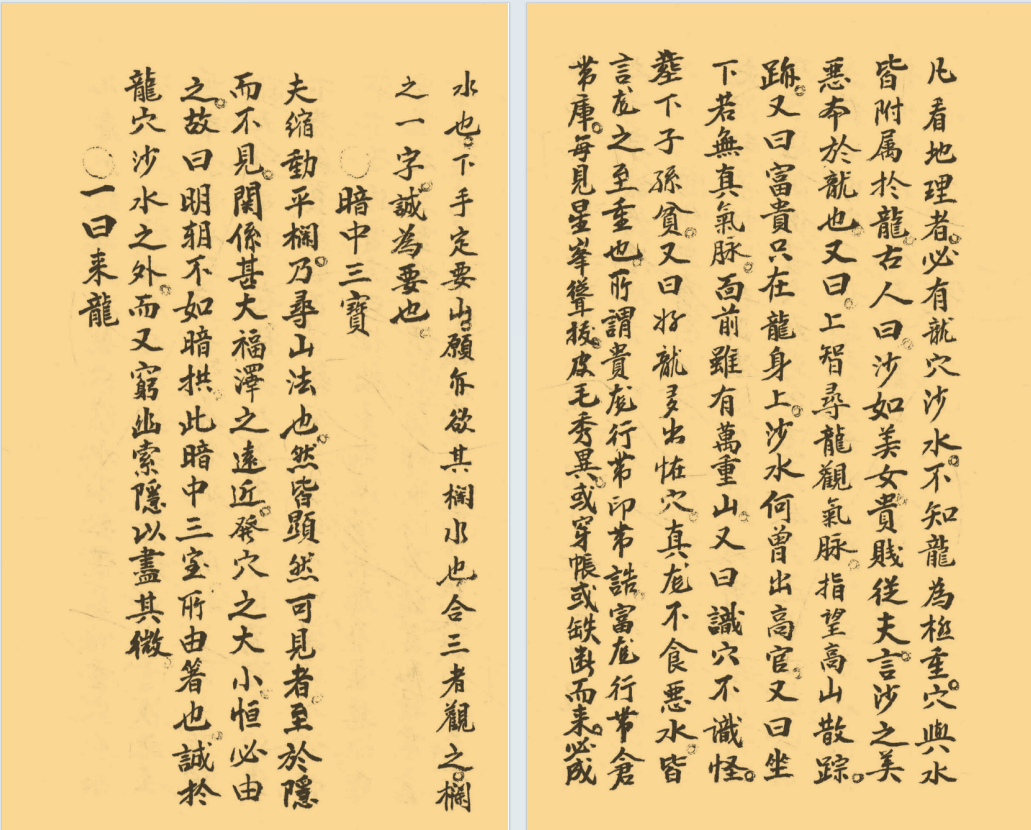 水也。下手定要山。願亦欲其欄水也合三者觀之。欄
之一字。誠為要也。
○暗中三寶
夫缩動平欄。乃尋山法也。然皆顯然可見者。至於隱
而不見。関係甚大福澤之遠近。發穴之大小。恒必由
之。故曰明朝不如暗拱。此暗中三宝所由著也。誠於
龍穴沙水之外。而又窮幽索隱以盡其微。
○一曰来龍
凡看地理者。必有龍穴沙水。不知龍為極重。穴與水
皆附属於龍。古人曰。沙如美女。貴賤從夫。言沙之美
悪本於龍也。又曰。上智尋龍觀氣脉。指望高山散踪。
跡。又曰富貴只在龍身上。沙水何曾出高官。又曰坐
下若無真氣脉。面前雖有萬重山。又曰識穴不識怪。
塟下子孫貧。又曰好龍多出恠穴。真龙不食悪水。皆
言龙之至重也。所謂貴龙行带印带誥。富龙行带倉
带庫。每見星峯聳拔。皮毛秀異。或穿帳或缺断而来。必成